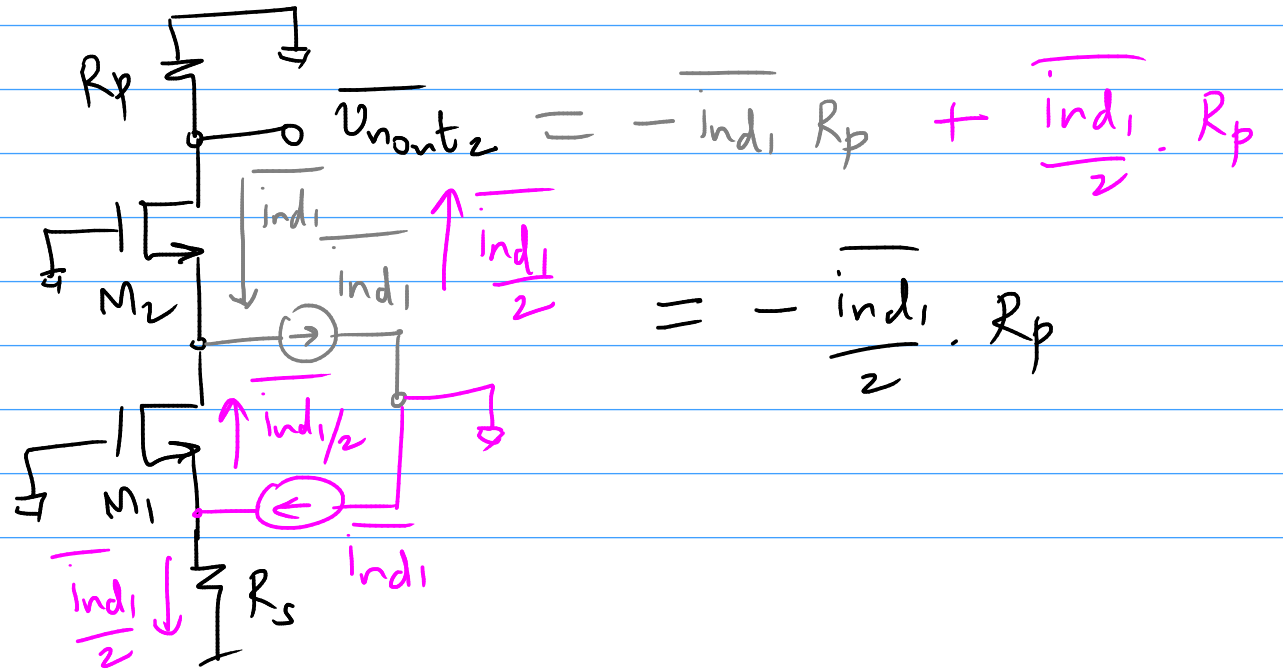 Rp
v̅nout2 = - i̅nd1 Rp + i̅nd1/2 . Rp
i̅nd1
i̅nd1
i̅nd1/2
M2
= - i̅nd1/2 . Rp
i̅nd1/2
M1
i̅nd1
i̅nd1/2
Rs